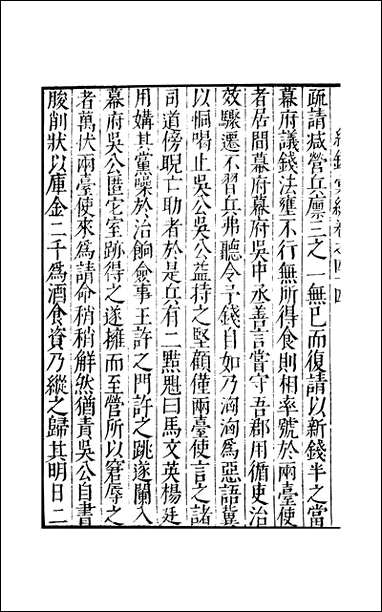 疏請减營兵廪三之一無已而復請以新錢半之當
幕府議錢法壅不行無所得食則相率號於兩臺使
者居間幕府幕府吳中丞善言當守吾郡用循吏治
效驟遷不習兵弗聽令予錢自如乃洶洶爲惡語冀
以恫喝止吳公吳公益持之堅顧僅兩臺使言之諸
司道傍睨亡助者於是兵有二點魁曰馬文英楊廷
用媾其黨譟於治餉僉事王許之門許之跳遂闌入
幕府吳公匿它室跡得之遂擁而至營所以窘辱之
者萬狀兩臺使來爲請命稍稍解然猶責吳公自書
朘削狀以庫金二千爲酒食資乃縱之歸其明日二